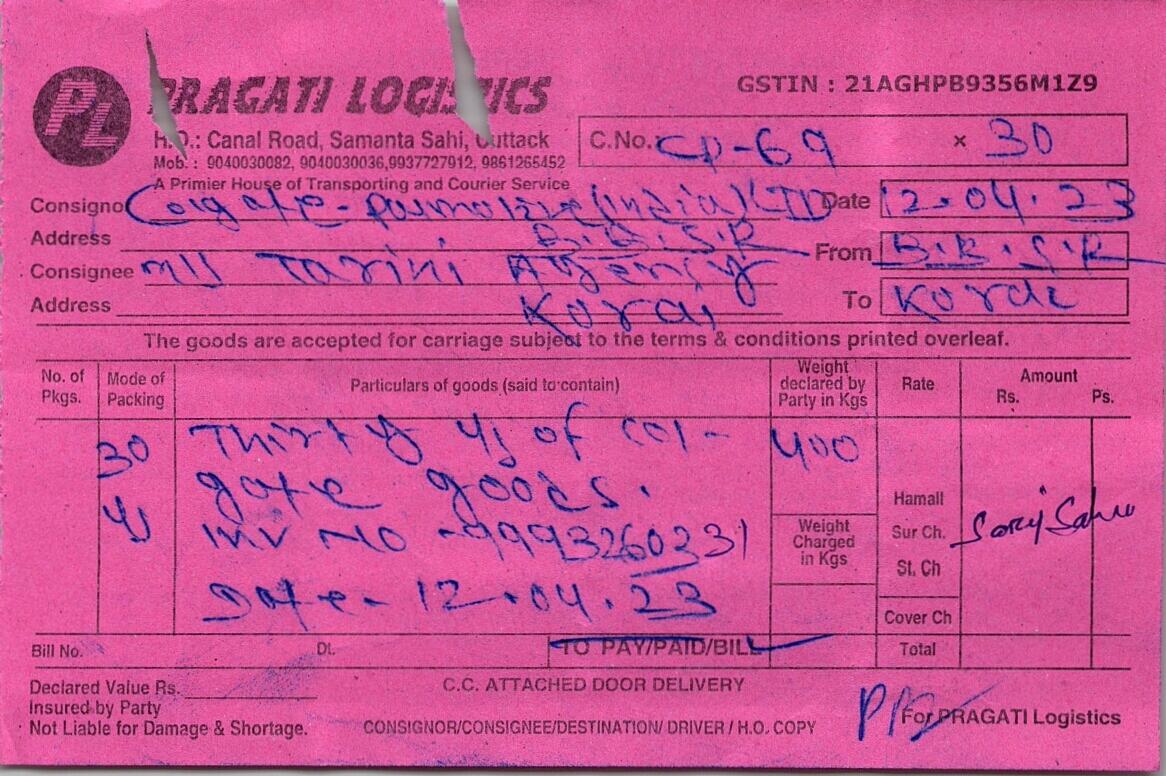 PL PRAGATI LOGISTICS
GSTIN : 21AGHPB9356M1Z9
H.O.: Canal Road, Samanta Sahi, Cuttack
Mob. : 9040030082, 9040030036,9937727912, 9861265452
A Primier House of Transporting and Courier Service
C.No. CP-69 x 30
Consignor Colgate-Palmolive (India) LTD Date 12.04.23
Address B.B.S.R From B.B.S.R
Consignee M/s Tarini Agency
Address Korai To Korai
The goods are accepted for carriage subject to the terms & conditions printed overleaf.
No. of Pkgs. Mode of Packing Particulars of goods (said to contain) Weight declared by Party in Kgs Rate Amount Rs. Ps.
30 Thirty of Col- 400
gate goods.
Hamali
INV NO - 9993260331 Weight Charged in Kgs Sur Ch.
St. Ch
Date - 12.04.23 Cover Ch
Bill No. Dt. TO PAY/PAID/BILL Total
Declared Value Rs. C.C. ATTACHED DOOR DELIVERY
Insured by Party
For PRAGATI Logistics
Not Liable for Damage & Shortage. CONSIGNOR/CONSIGNEE/DESTINATION/ DRIVER / H.O. COPY